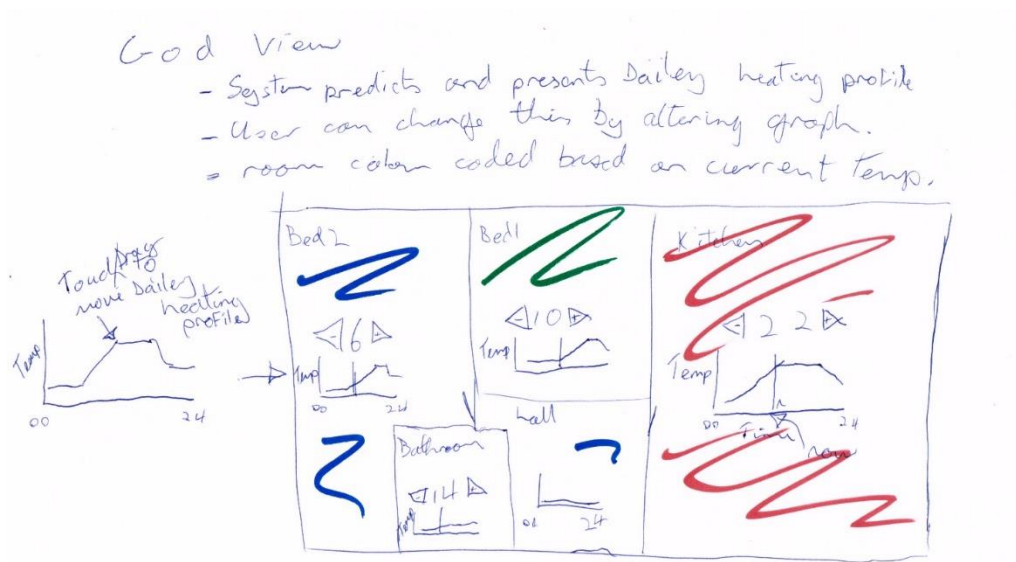 God View
- System predicts and presents Dailey heating profile
- User can change this by altering graph.
- room colour coded based on current Temp.
Touch/Drag
TO
move Dailey
heating
profile
Temp
00
24
Bed 2
- 6 +
Temp
00
24
Bed 1
- 10 +
Temp
Kitchen
- 22 +
Temp
00
24
Time
now
Bathroom
- 14 +
Temp
hall
00
24